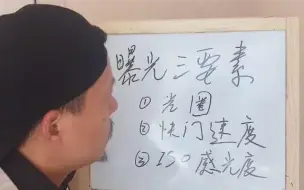 曝光三要素
①光圈
②快门速度
③ISO感光度